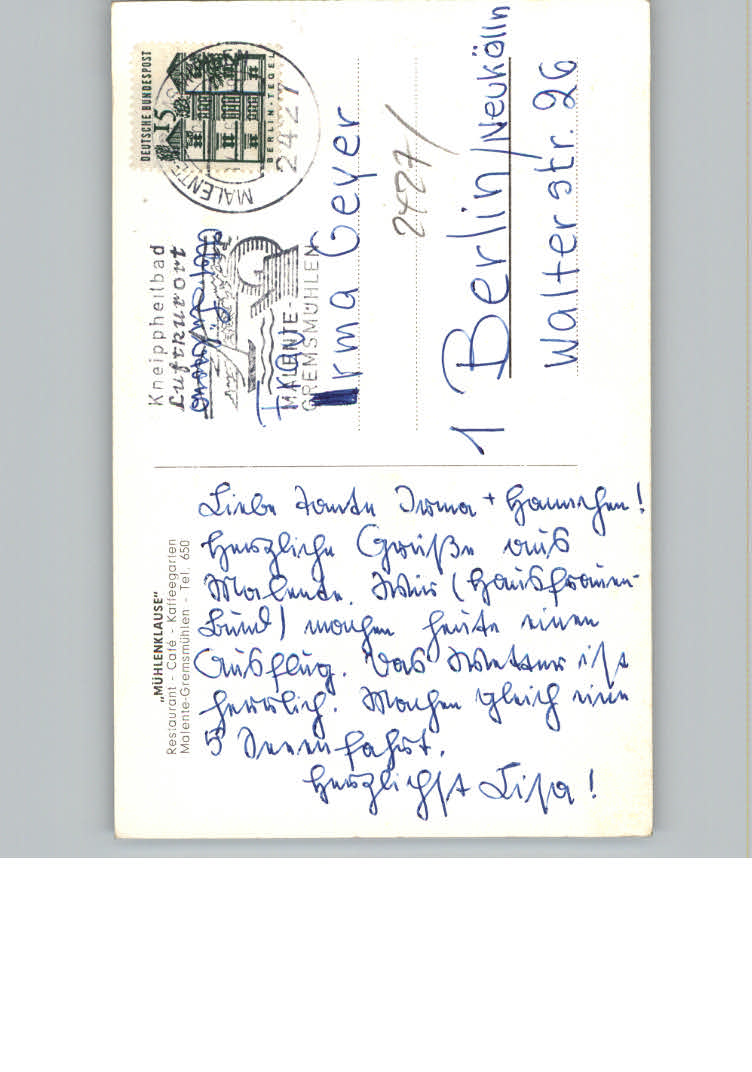 „MÜHLENKLAUSE"
Restaurant - Café - Kaffeegarten
Malente-Gremsmühlen - Tel. 650
Liebe Tante Irma + Hannchen!
Herzliche Grüße aus
Malente. Wir (Hausfrauen-
bund) machen heute einen
Ausflug. Das Wetter ist
herrlich. Machen gleich eine
5 Seenfahrt.
Herzlichst Lisa!
DEUTSCHE BUNDESPOST
15
BERLIN-TEGEL
MALENTE
2427
Kneippheilbad
Luftkurort
MALENTE-
GREMSMÜHLEN
Frau
Irma Geyer
2427/
1 Berlin/Neukölln
Walterstr. 26